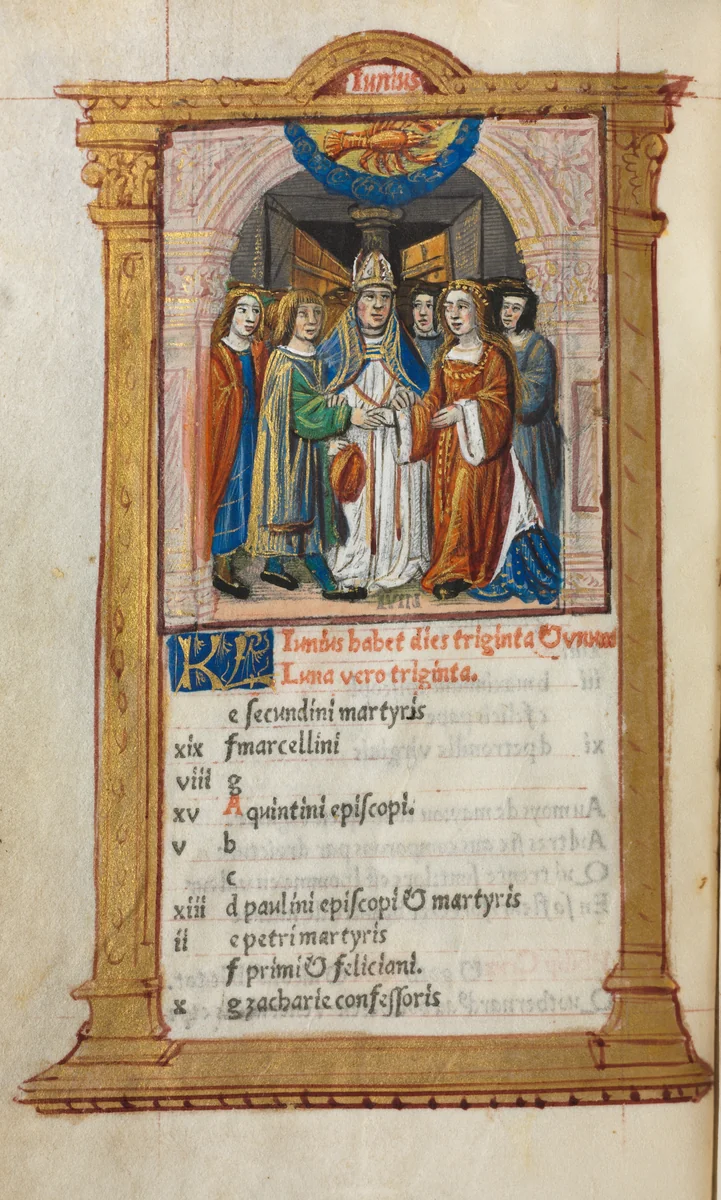 Iunius
XVIII
KL Iunius habet dies triginta & unum
Luna vero triginta.
e secundini martyris
xix f marcellini
viii g
xv A quintini episcopi.
v b
c
xiii d paulini episcopi & martyris
ii e petri martyris
f primi & feliciani.
x g zacharie confessoris